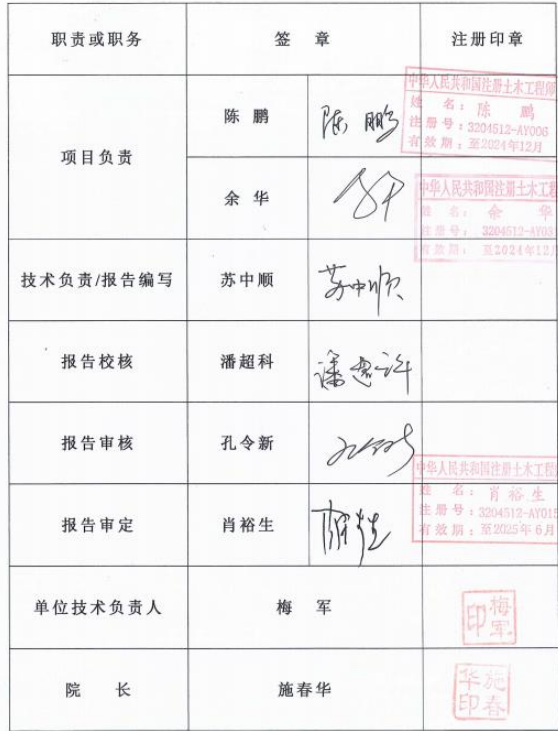 职责或职务 签 章 注册印章
项目负责
陈 鹏 陈 鹏
中华人民共和国注册土木工程师
姓 名：陈 鹏
注册号：3204512-AY006
有效期：至2024年12月
余 华
中华人民共和国注册土木工程
姓 名：余 华
注册号：3204512-AY03
有效期：至2024年12月
技术负责/报告编写 苏中顺 苏中顺
报告校核 潘超科
报告审核 孔令新
报告审定 肖裕生
中华人民共和国注册土木工程
姓 名：肖裕生
注册号：3204512-AY015
有效期：至2025年6月
单位技术负责人 梅 军 梅军印
院 长 施春华 施春华印